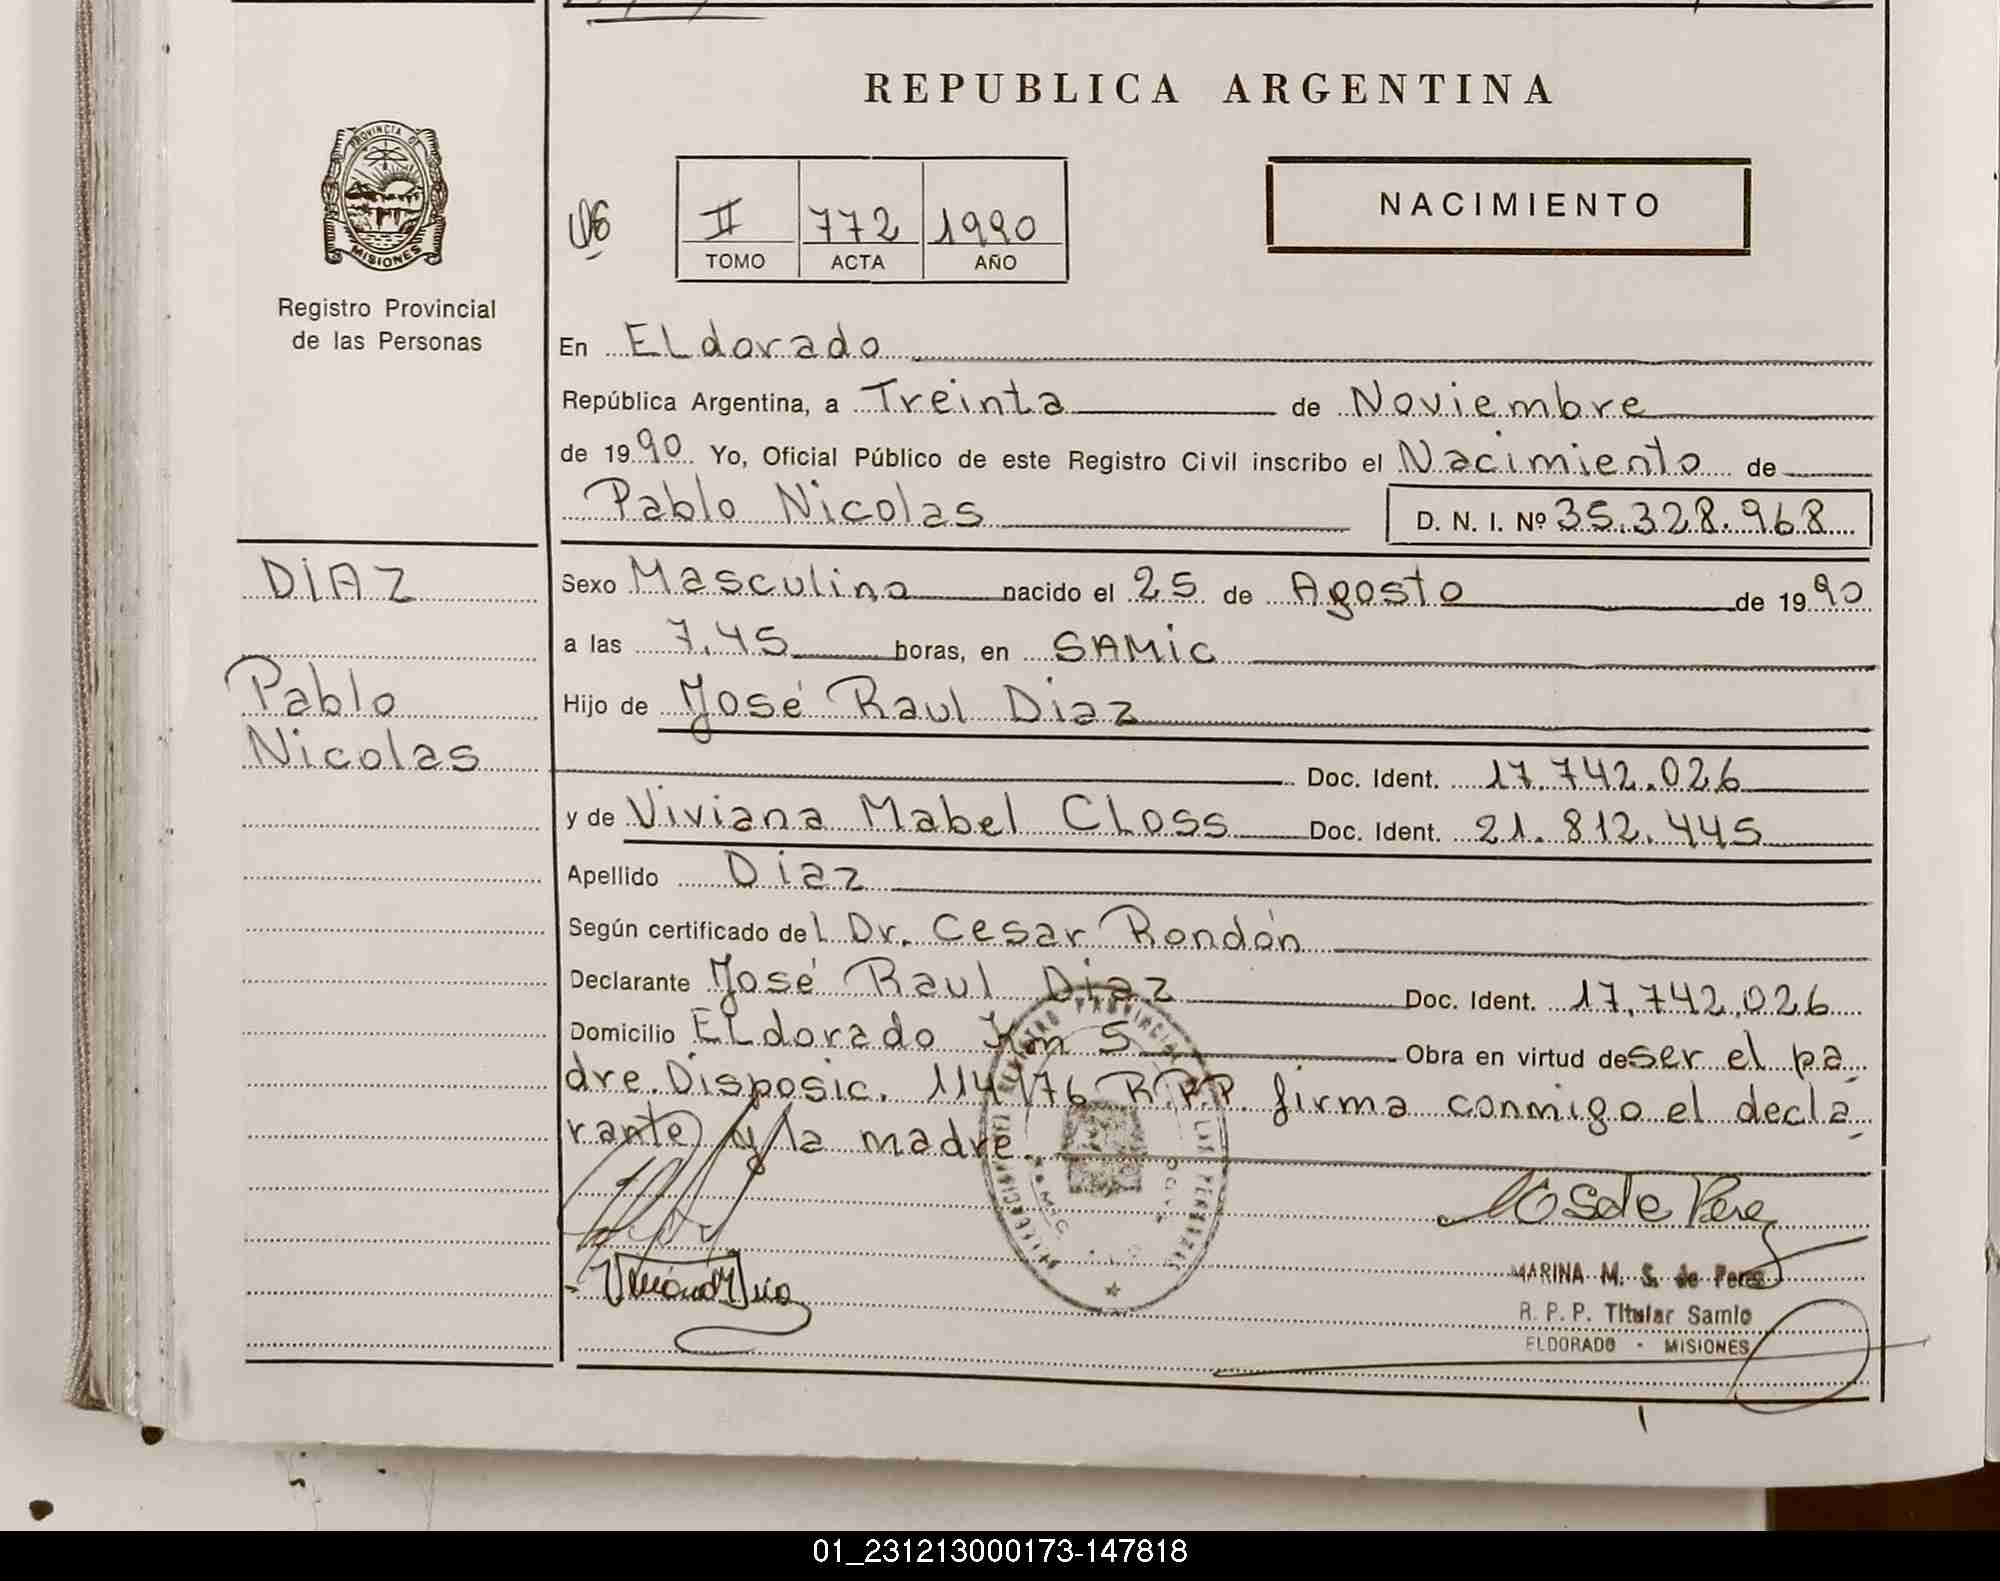 REPUBLICA ARGENTINA
PROVINCIA DE
MISIONES
Registro Provincial
de las Personas
II 772 1990
TOMO ACTA AÑO
NACIMIENTO
En Eldorado
República Argentina, a Treinta de Noviembre
de 1990 Yo, Oficial Público de este Registro Civil inscribo el Nacimiento de
Pablo Nicolas D. N. I. Nº 35.328.968
DIAZ
Pablo
Nicolas
Sexo Masculino nacido el 25 de Agosto de 1990
a las 7.45 horas, en SAMIC
Hijo de José Raul Diaz
Doc. Ident. 17.742.026
y de Viviana Mabel Closs Doc. Ident. 21.812.445
Apellido Diaz
Según certificado del Dr. Cesar Rondón
Declarante José Raul Diaz Doc. Ident. 17.742.026
Domicilio Eldorado Km 5 Obra en virtud de ser el pa
dre. Disposic. 114/76 R.P.P. firma conmigo el decla
rante y la madre.
MARINA M. S. de Perez
R. P. P. Titular Samic
ELDORADO - MISIONES
01_231213000173-147818